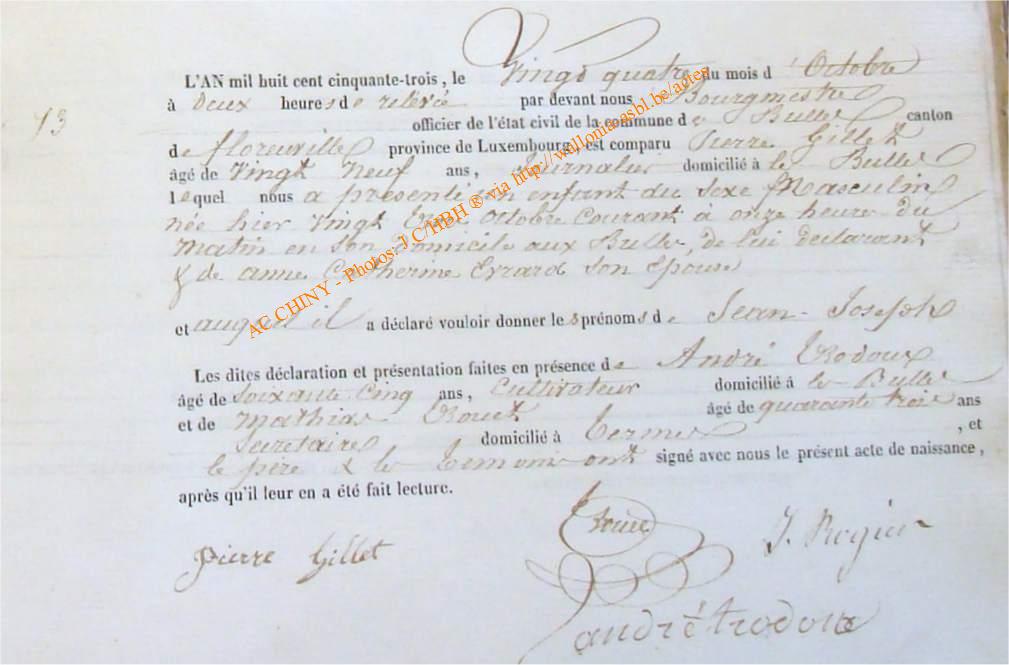 13
L'AN mil huit cent cinquante-trois, le Vingt quatre du mois d'Octobre
à Deux heures de relévée par devant nous Bourgmestre
officier de l'état civil de la commune de Bulles canton
de florenville province de Luxembourg, est comparu Pierre Gillet
âgé de Vingt Neuf ans, Journalier domicilié à les Bulles
lequel nous a présenté un enfant du Sexe Masculin
née hier Vingt trois Octobre Courant à onze heure du
matin en son domicile aux Bulles, de lui déclarant
& de anne Catherine Errard son Epouse
et auquel il a déclaré vouloir donner les prénoms de Jean-Joseph
Les dites déclaration et présentation faites en présence de André Trodoux
âgé de Soixante Cinq ans, Cultivateur domicilié à les Bulles
et de Mathias âgé de quarante trois ans
Secretaire domicilié à Termes, et
le père & les Temoins ont signé avec nous le présent acte de naissance,
après qu'il leur en a été fait lecture.
Pierre Gillet
andré trodoux
AC CHINY - Photos: J C/HBH ® via http://wallonia.asbl.be/actes